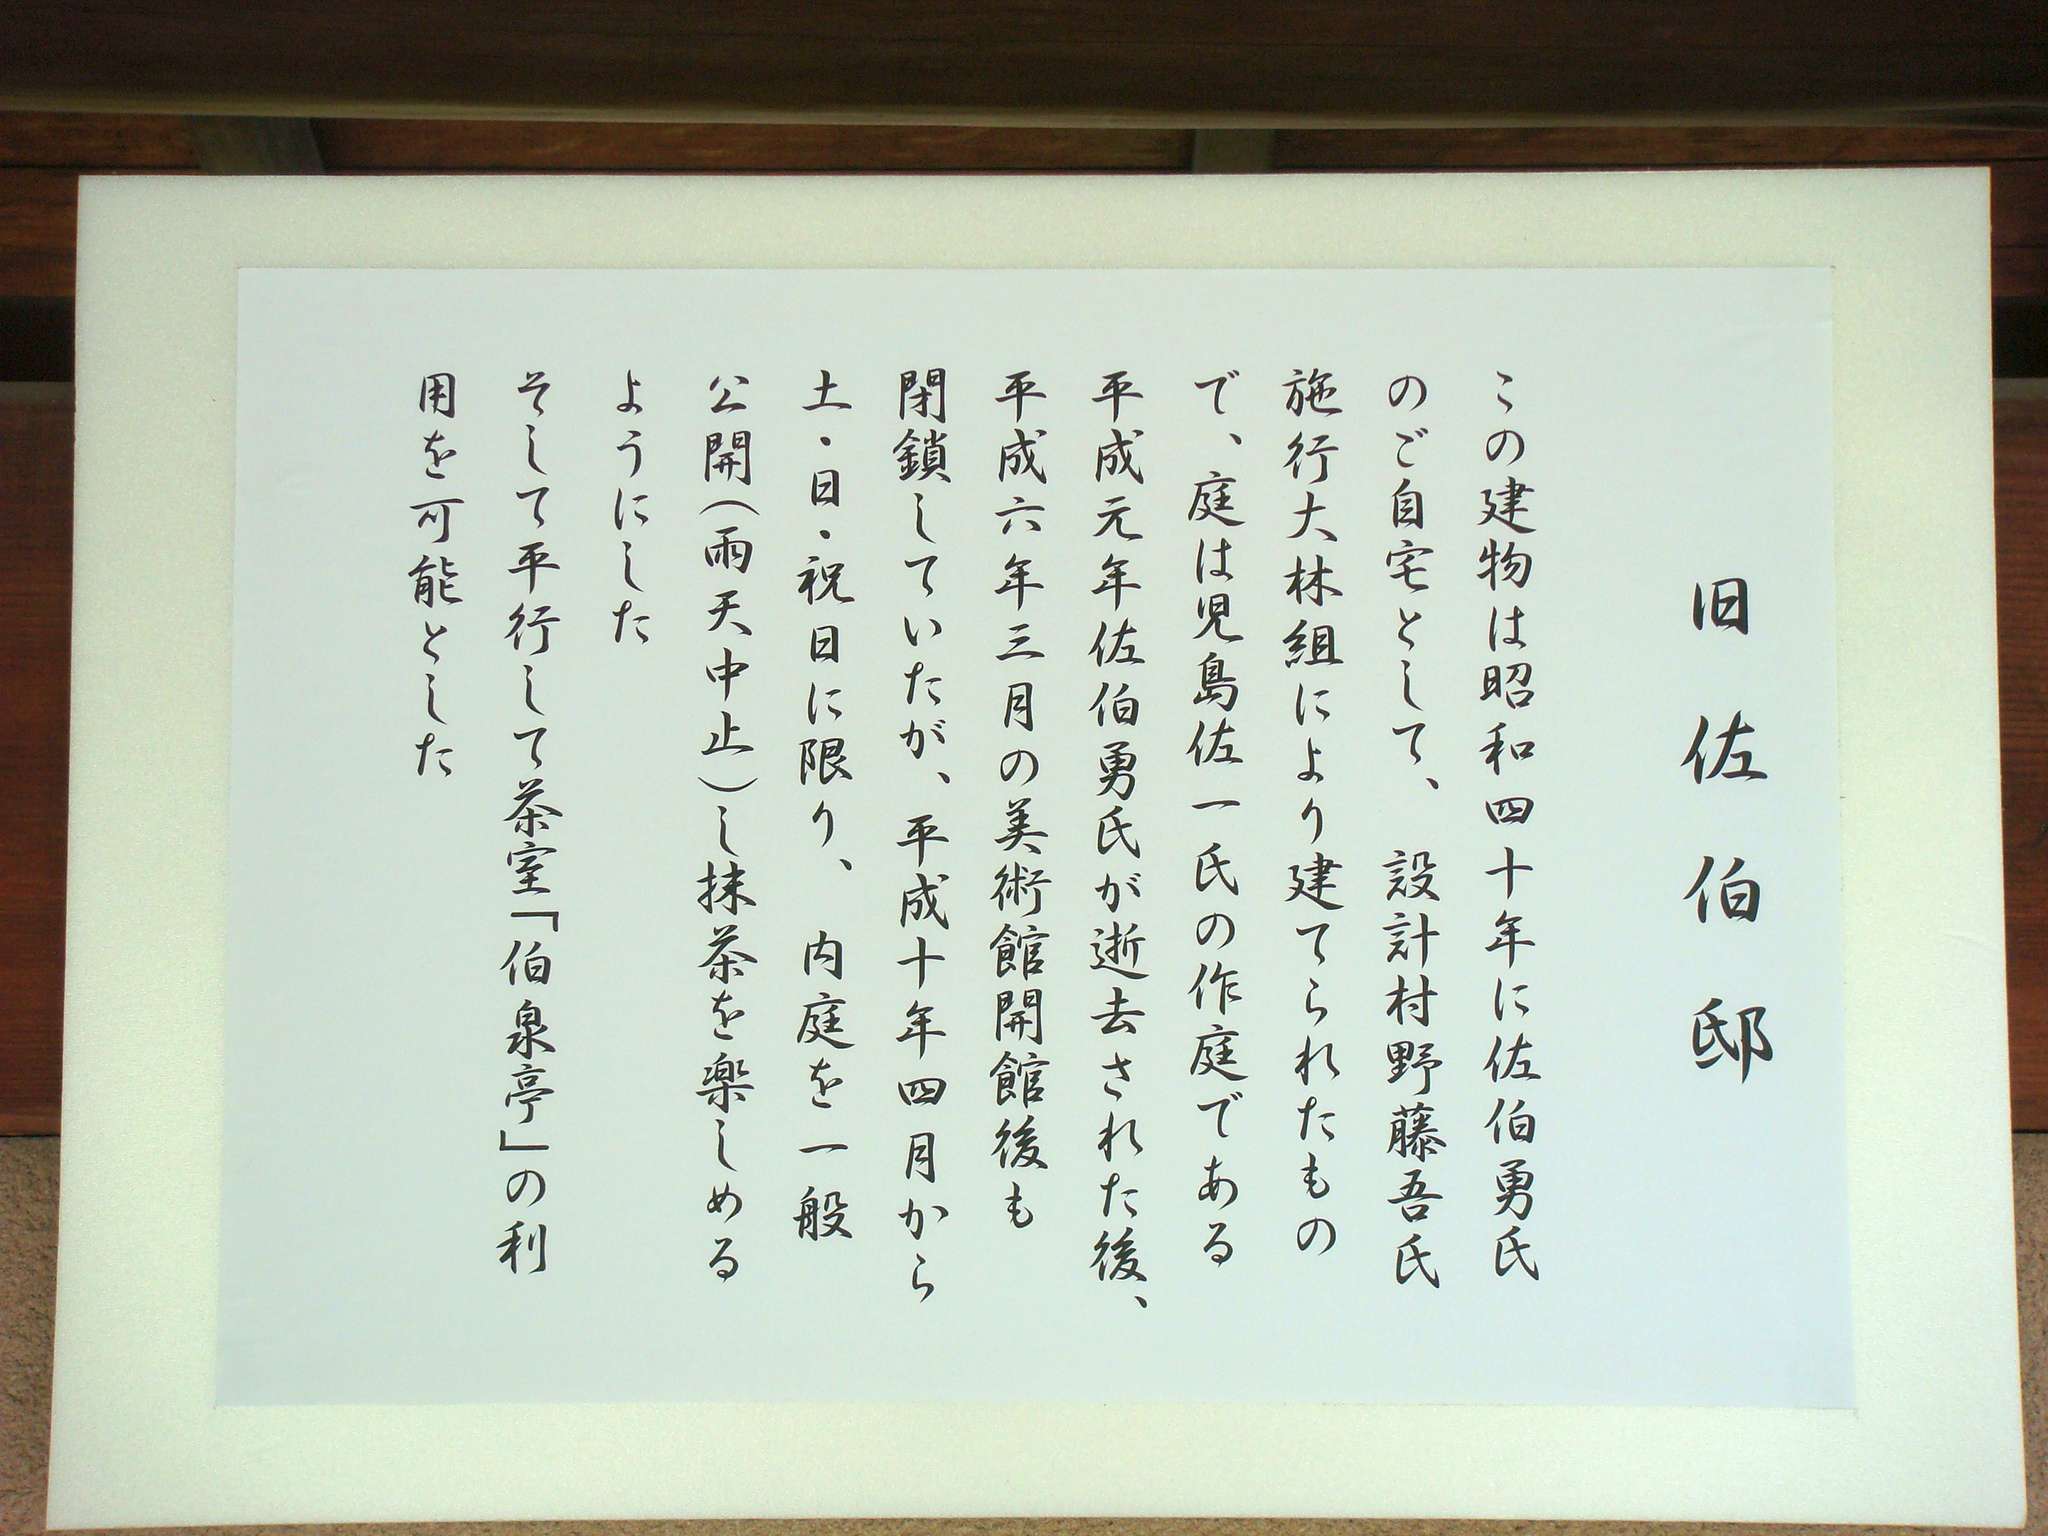 旧佐伯邸
この建物は昭和四十年に佐伯勇氏
のご自宅として、設計村野藤吾氏
施行大林組により建てられたもの
で、庭は児島佐一氏の作庭である
平成元年佐伯勇氏が逝去された後、
平成六年三月の美術館開館後も
閉鎖していたが、平成十年四月から
土・日・祝日に限り、内庭を一般
公開(雨天中止)し抹茶を楽しめる
ようにした
そして平行して茶室「伯泉亭」の利
用を可能とした